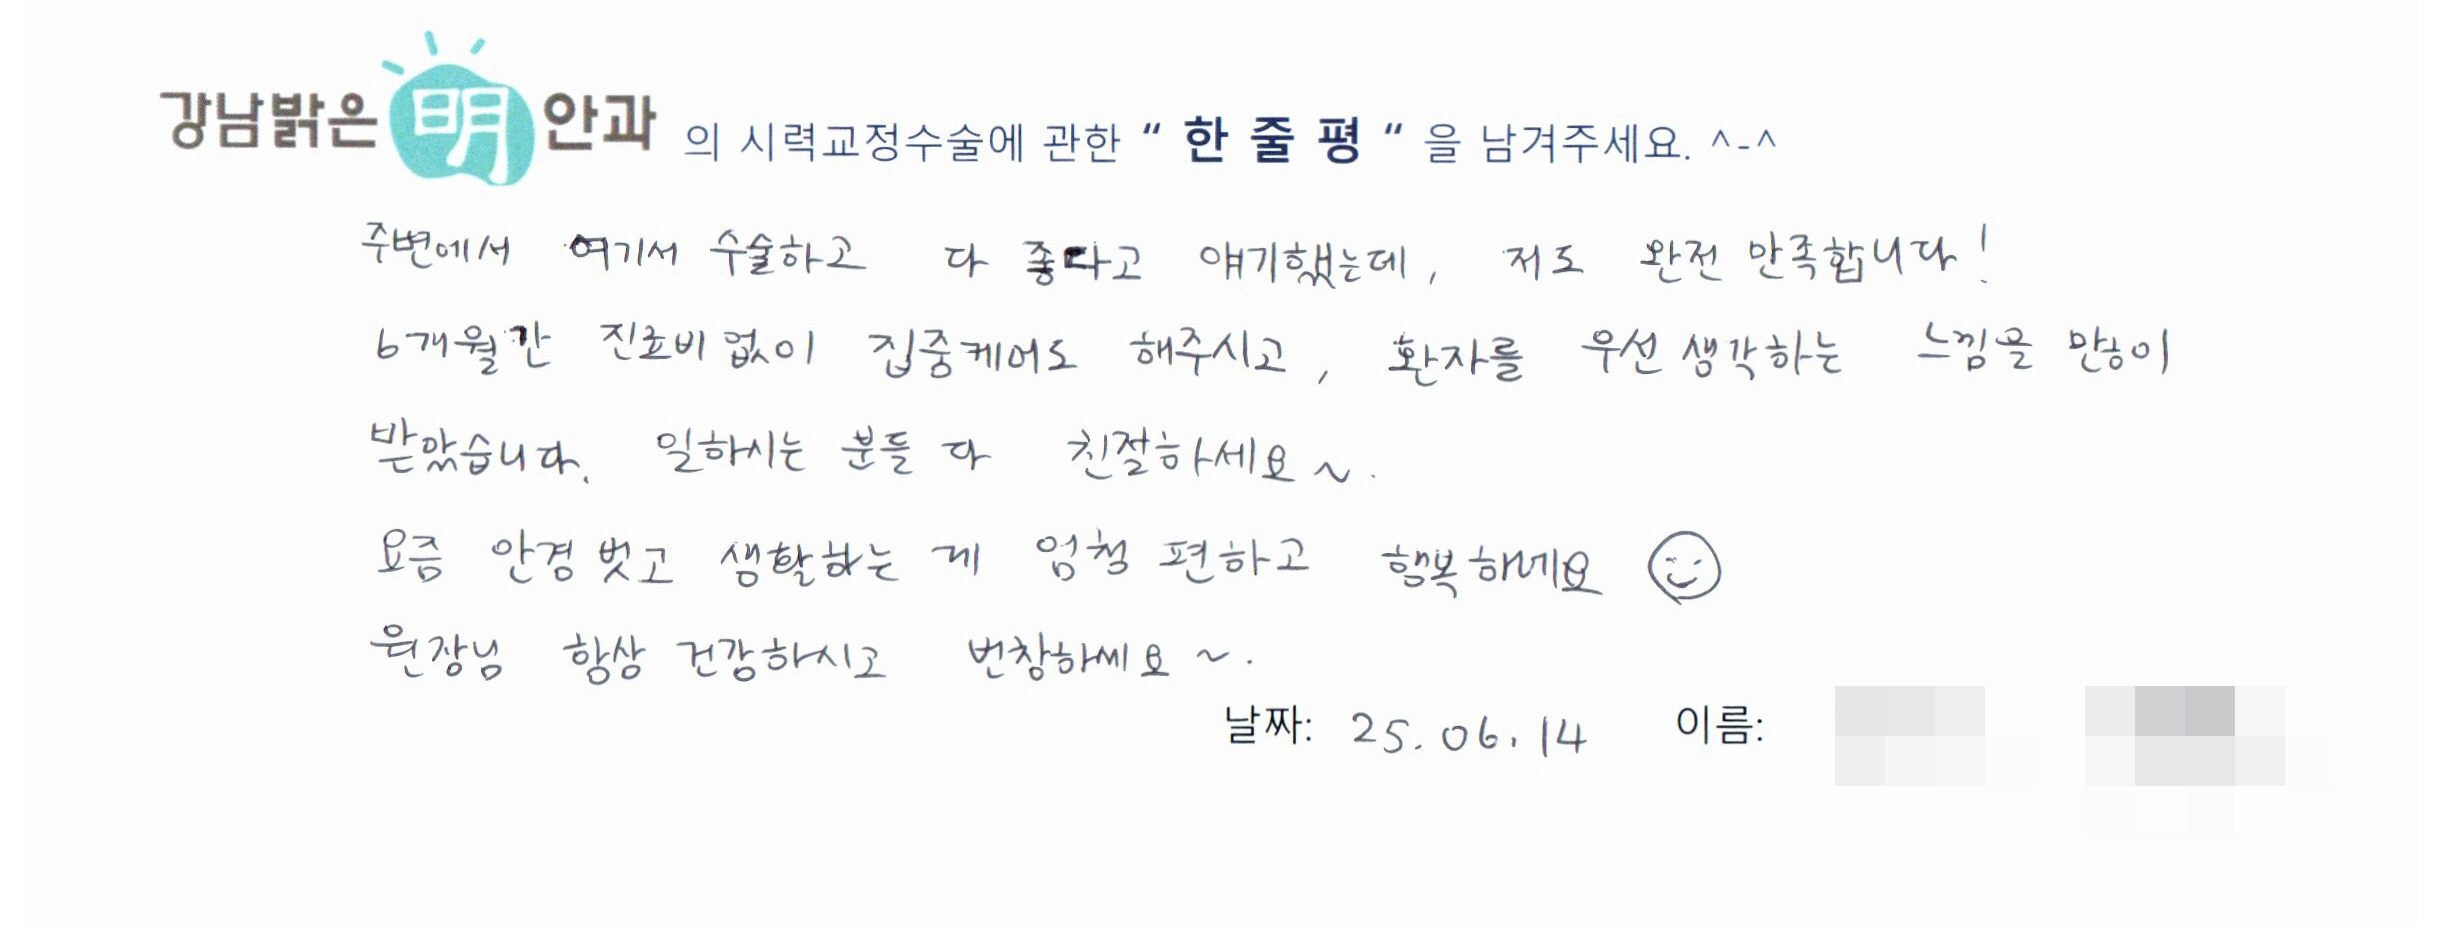 강남밝은 明 안과 의 시력교정수술에 관한 “ 한 줄 평 “ 을 남겨주세요. ^-^
주변에서 여기서 수술하고 다 좋다고 얘기했는데, 저도 완전 만족합니다!
6개월간 진료비 없이 집중케어도 해주시고, 환자를 우선 생각하는 느낌을 많이
받았습니다. 일하시는 분들 다 친절하세요~.
요즘 안경 벗고 생활하는 게 엄청 편하고 행복하네요
원장님 항상 건강하시고 번창하세요~.
날짜: 25.06.14 이름: